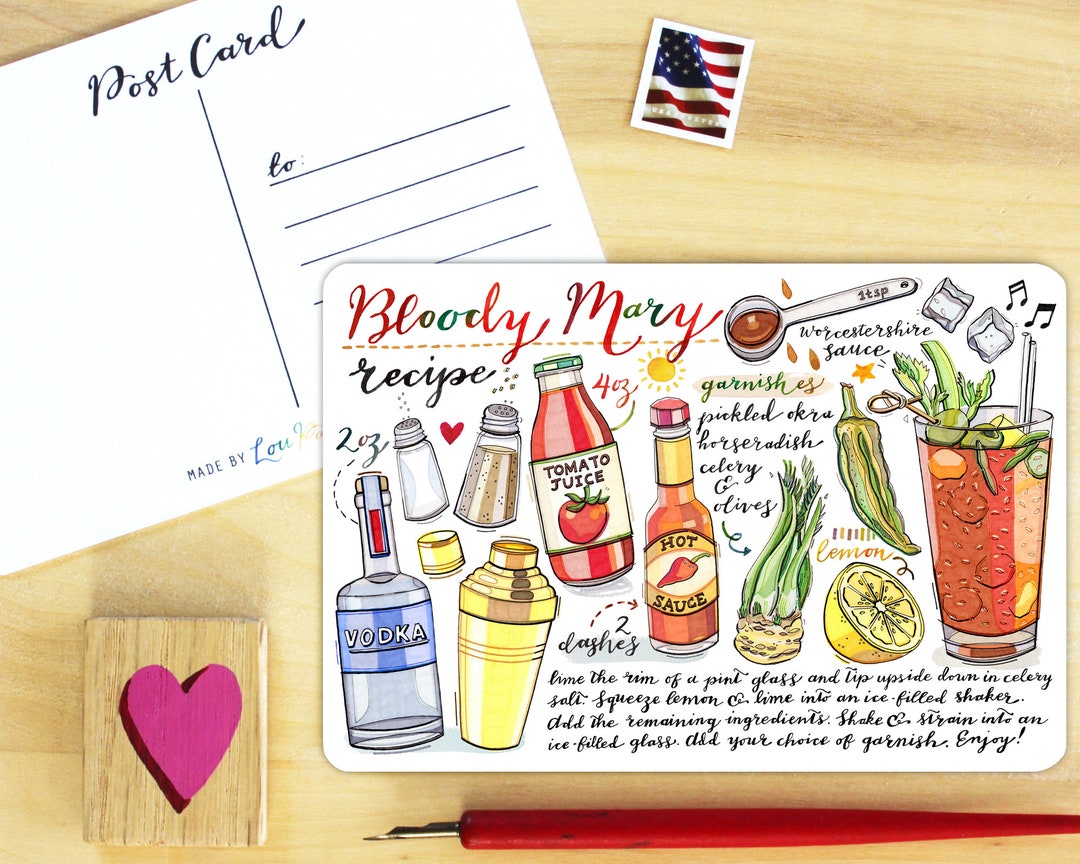 Post Card
to:
MADE BY Lou
USA FOREVER
Bloody Mary
recipe
1tsp
worcestershire
sauce
2oz
4oz
garnishes
pickled okra
horseradish
celery
&
olives
TOMATO
JUICE
HOT
SAUCE
lemon
VODKA
2
dashes
lime the rim of a pint glass and tip upside down in celery
salt. Squeeze lemon & lime into an ice-filled shaker.
Add the remaining ingredients. Shake & strain into an
ice-filled glass. Add your choice of garnish. Enjoy!